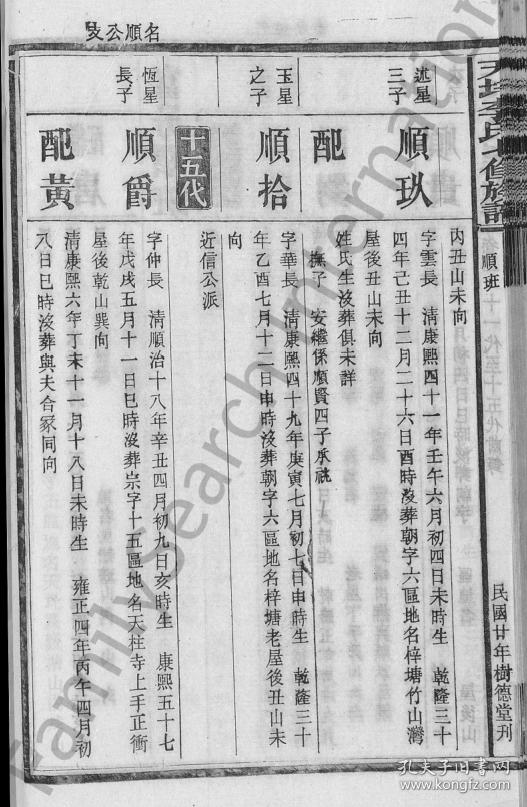 名順公支
天坪李氏七修族譜
順班
十一代至十五代齒錄
民國廿年樹德堂刊
丙丑山未向
述星三子
順玖
字雲長 清康熙四十一年壬午六月初四日未時生 乾隆三十
四年己丑十二月二十六日酉時沒葬朝字六區地名梓塘竹山灣
屋後丑山未向
配
姓氏生沒葬俱未詳
撫子 安繼係順賢四子承祧
玉星之子
順拾
字華長 清康熙四十九年庚寅七月初七日申時生 乾隆三十
年乙酉七月十二日申時沒葬朝字六區地名梓塘老屋後丑山未
向
十五代
近信公派
恆星長子
順爵
字仲長 清順治十八年辛丑四月初九日亥時生 康熙五十七
年戊戌五月十一日巳時沒葬宗字十五區地名天柱寺上手正衝
屋後乾山巽向
配黃
清康熙六年丁未十一月十八日未時生 雍正四年丙午四月初
八日巳時沒葬與夫合冢同向
FamilySearch International
孔夫子旧书网
www.kongfz.com